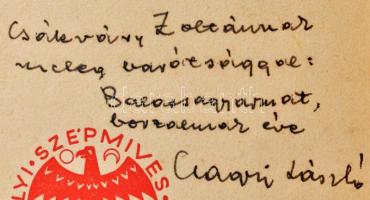 Csákváry Zoltánnak
meleg barátsággal:
Balassagyarmat,
borzalmak éve
László
LYI · SZÉPMIVES